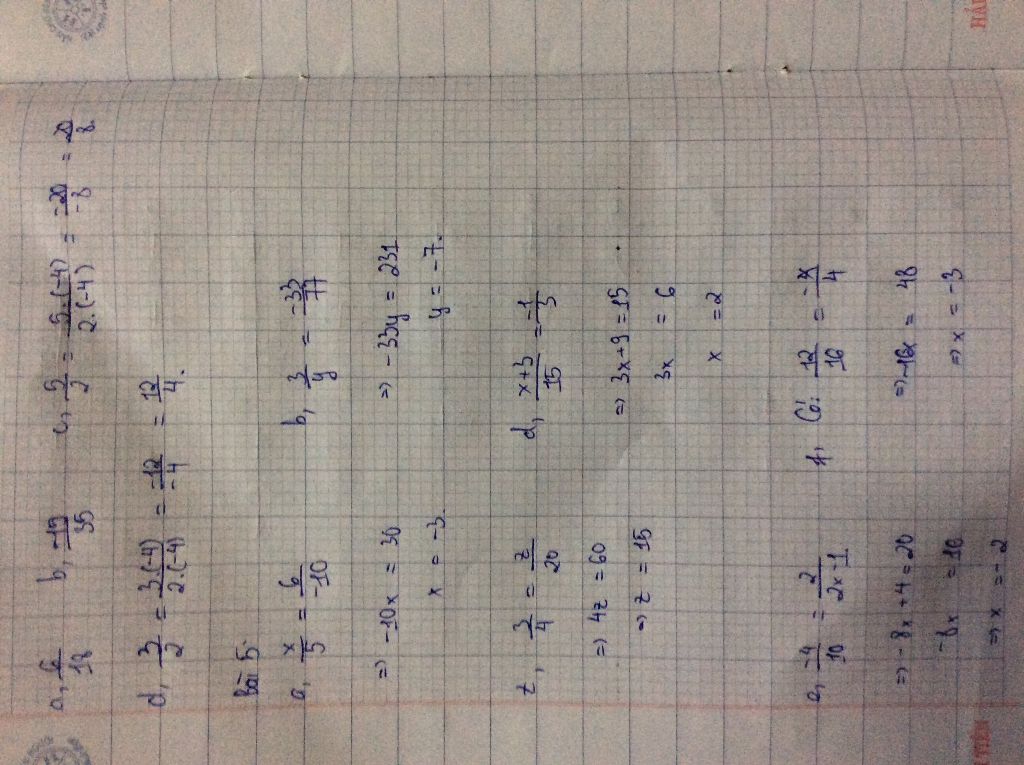 a, 6/18 b, -19/35 c, 5/2 = 5.(-4)/2.(-4) = -20/-8 = 20/8
d, 3/2 = 3.(-4)/2.(-4) = -12/-4 = 12/4.
Bài 5.
a, x/5 = 6/-10 b, 3/y = -33/77
=> -10x = 30 => -33y = 231
x = -3. y = -7.
z, 3/4 = z/20 d, x+3/15 = -1/3
=> 4z = 60 => 3x+9 = 15
=> z = 15 3x = 6
x = 2
a, -4/10 = 2/2x-1 Có: 12/16 = -x/4
=> -8x + 4 = 20 => -16x = 48
-8x = 16 => x = -3
=> x = -2